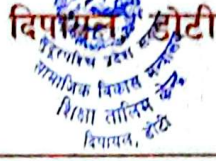 दिपायल, डोटी
सुदूरपश्चिम प्रदेश
सामाजिक विकास मन्त्रालय
शिक्षा तालिम केन्द्र
दिपायल, डोटी